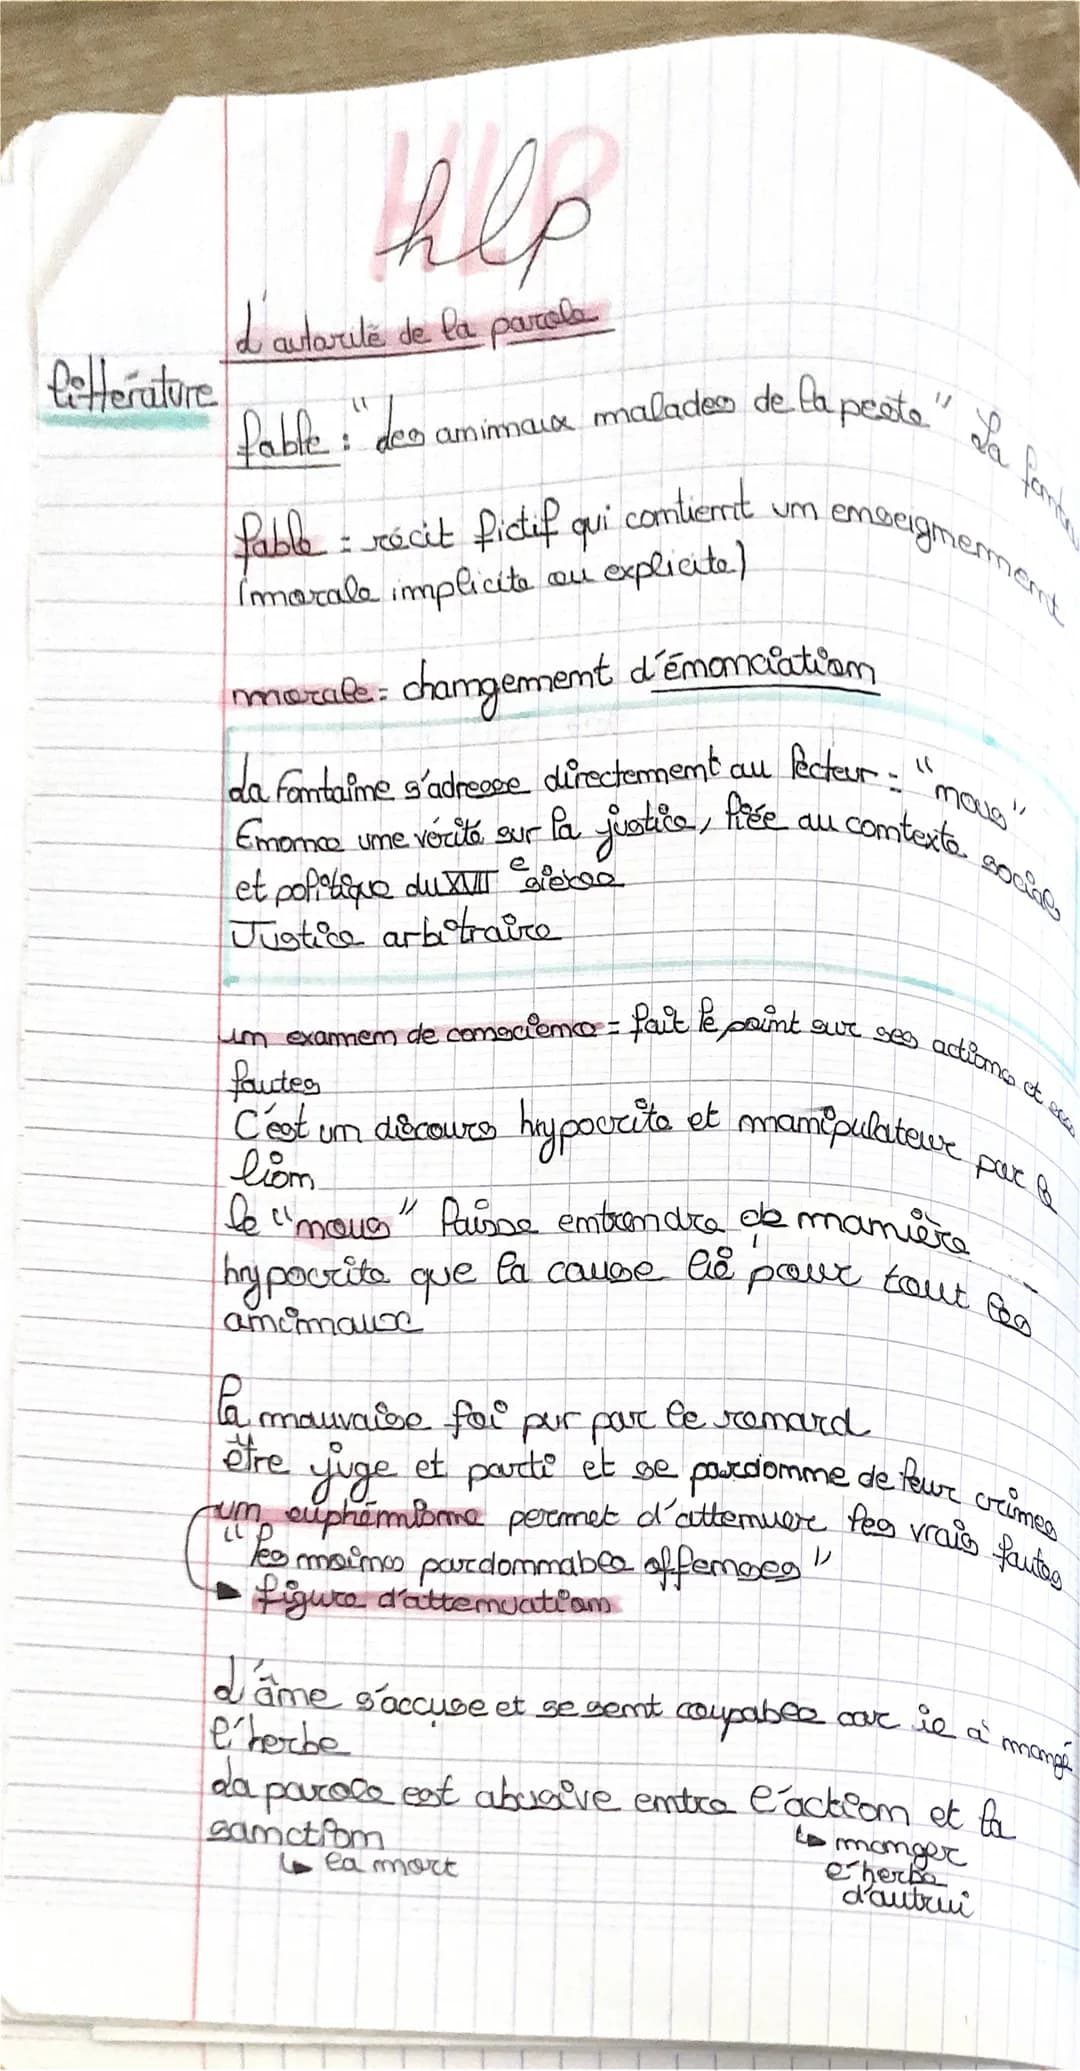 HLP
hlp
L'autorité de la parole
littérature
fable : "les animaux malades de la peste" La fonta
fable = récit fictif qui contient un enseignement
(morale implicite ou explicite)
morale = changement d'énonciation
La Fontaine s'adresse directement au lecteur = "nous"
Enonce une vérité sur la justice, liée au contexte social
et politique du XVII e siècle
Justice arbitraire
un examen de conscience = fait le point sur ses actions et ses
fautes
C'est un discours hypocrite et manipulateur par le
lion
le "nous" laisse entendre de manière
hypocrite que la cause est pour tout les
animaux
la mauvaise foi pur par le renard
être juge et parti et se pardonne de leur crimes
un euphémisme permet d'attenuere les vrais fautes
"les moines pardonnables offenses"
→ figure d'attenuation
L'âne s'accuse et se sent coupable car il a mangé
l'herbe
La parole est abusive entre l'action et la
sanction
↳ manger
l'herbe
d'autrui
↳ la mort